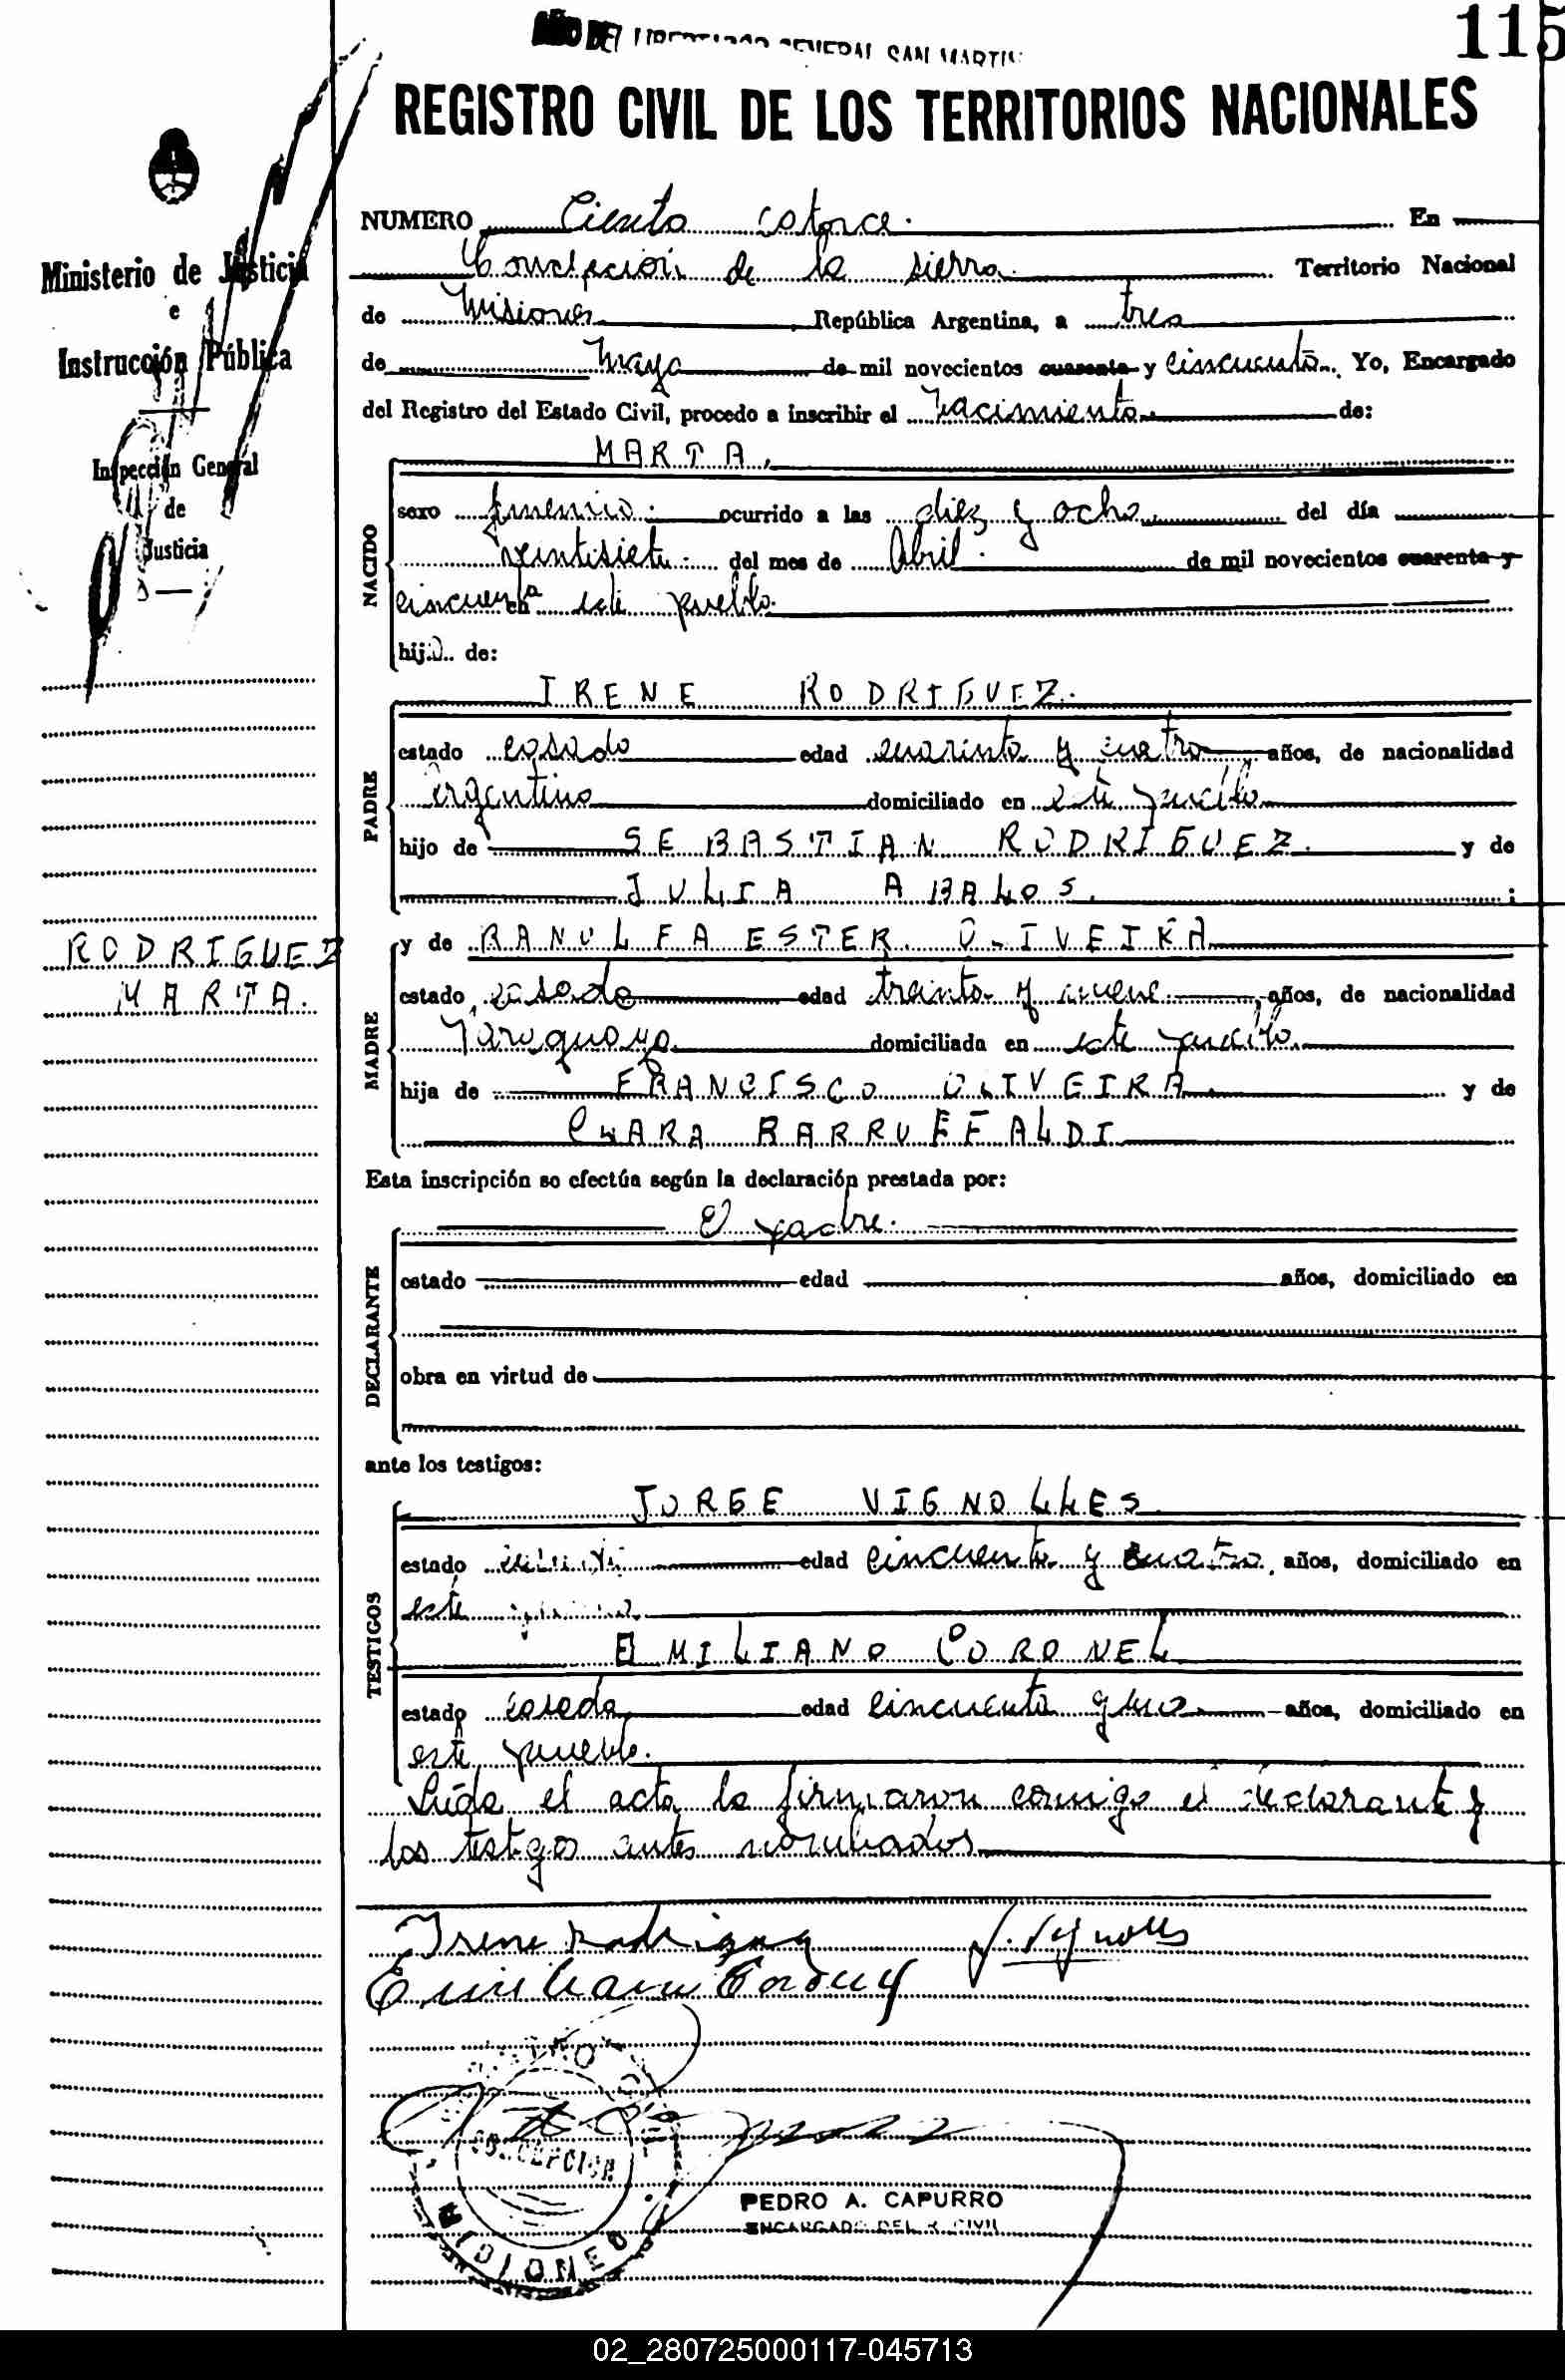 115
AÑO DEL LIBERTADOR GENERAL SAN MARTIN
REGISTRO CIVIL DE LOS TERRITORIOS NACIONALES
Ministerio de Justicia
e
Instrucción Pública
Inspección General
de
Justicia
RODRIGUEZ
MARTA.
NUMERO Ciento catorce. En
Concepción de la sierra. Territorio Nacional
de Misiones República Argentina, a tres
de Mayo de mil novecientos cuarenta y cincuenta. Yo, Encargado
del Registro del Estado Civil, procedo a inscribir el Nacimiento. de:
NACIDO
MARTA.
sexo ocurrido a las diez y ocho. del día
veintisiete. del mes de Abril. de mil novecientos cuarenta y
cincuenta en este pueblo.
hija de:
PADRE
IRENE RODRIGUEZ.
estado casado edad cuarenta y cuatro años, de nacionalidad
argentino domiciliado en este pueblo
hijo de SEBASTIAN RODRIGUEZ. y de
JULIA ABALOS. ;
MADRE
y de RANULFA ESTER OLIVEIRA
estado, casada edad treinta y nueve años, de nacionalidad
Paraguaya domiciliada en este pueblo.
hija de FRANCISCO OLIVEIRA. y de
CLARA BARRUEFALDI
Esta inscripción se efectúa según la declaración prestada por:
DECLARANTE
El padre.
estado edad años, domiciliado en
obra en virtud de
ante los testigos:
TESTIGOS
JORGE VIGNOLLES
estado edad cincuenta y cuatro, años, domiciliado en
este
EMILIANO CORONEL
estado casado edad cincuenta y uno años, domiciliado en
este pueblo.
Leída el acta, la firmaron conmigo el declarante y
los testigos antes nombrados
Irene Rodriguez J. Vignolles
Emiliano Coronel
CONCEPCION
MISIONES
PEDRO A. CAPURRO
ENCARGADO DEL R. CIVIL
02_280725000117-045713